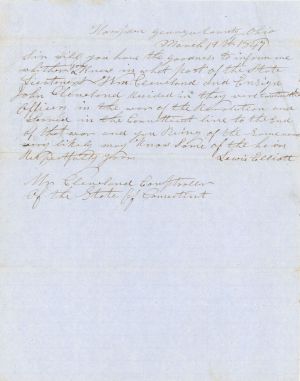 Hampden Geauga County Ohio
March 19th 1847
Sir will you have the goodness to inform me
whether you know in what part of the State
Lieutenant Wm Cleveland and Ensign
John Cleveland resided in they were
Officers in the war of the Revolution and
served in the Connecticut line to the End
of that war and you Being of the
very likely may know some of the heirs
Respectfully yours Lewis Elliott
Mr Cleveland Comptroller
Of the State of Connecticut